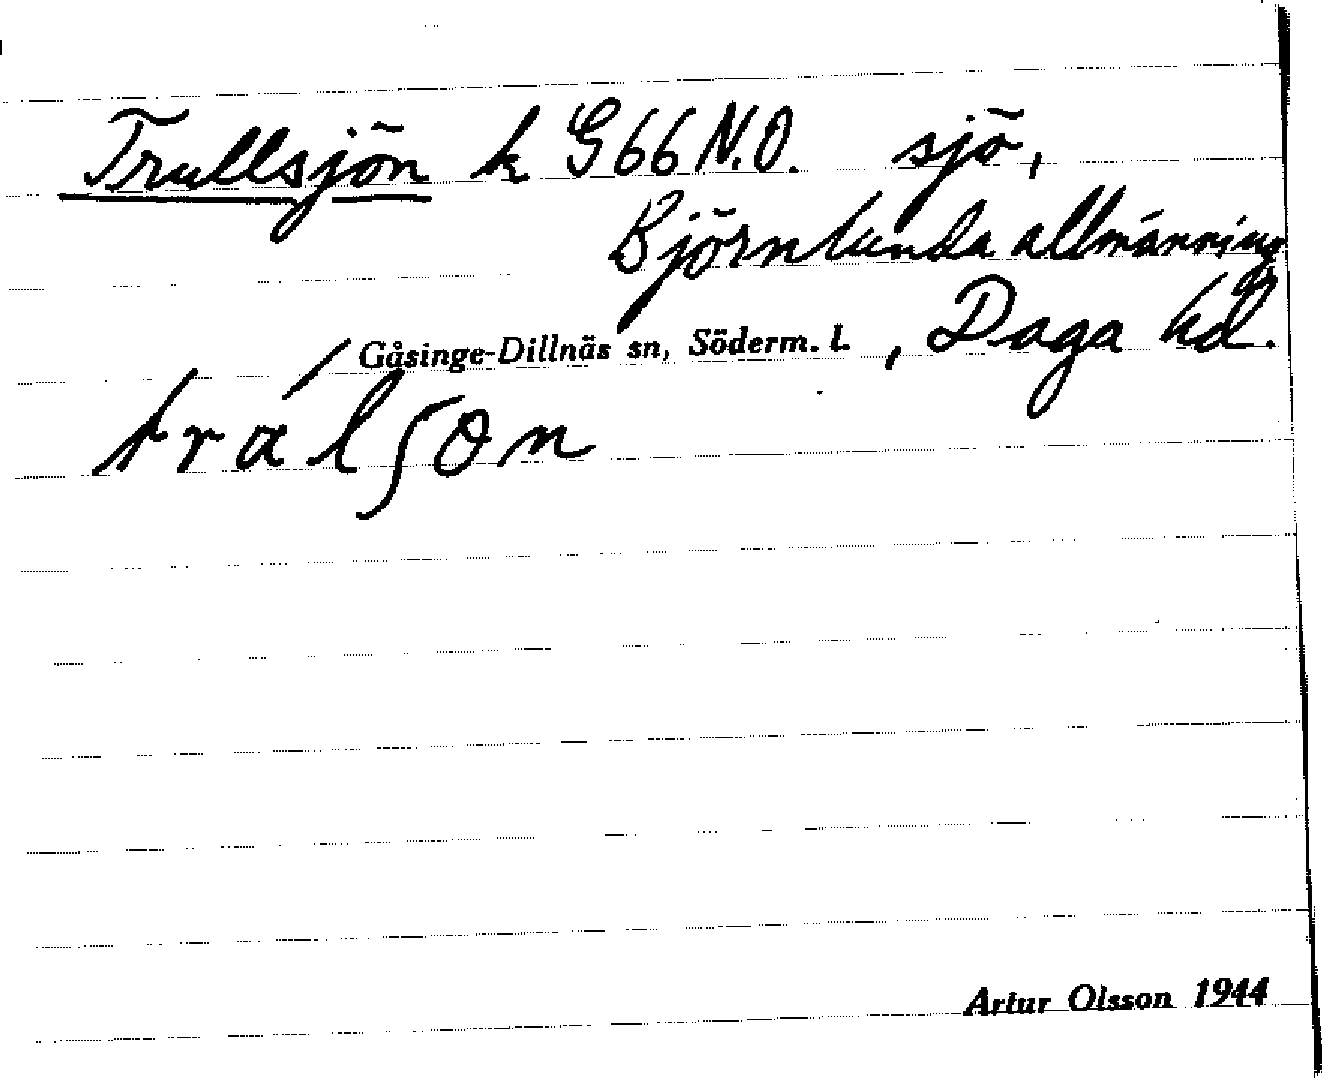 Trullsjön k G66 N.O. sjö,
Björnlunda allmänning
Gåsinge-Dillnäs sn, Söderm. l., Daga hd.
Artur Olsson 1944